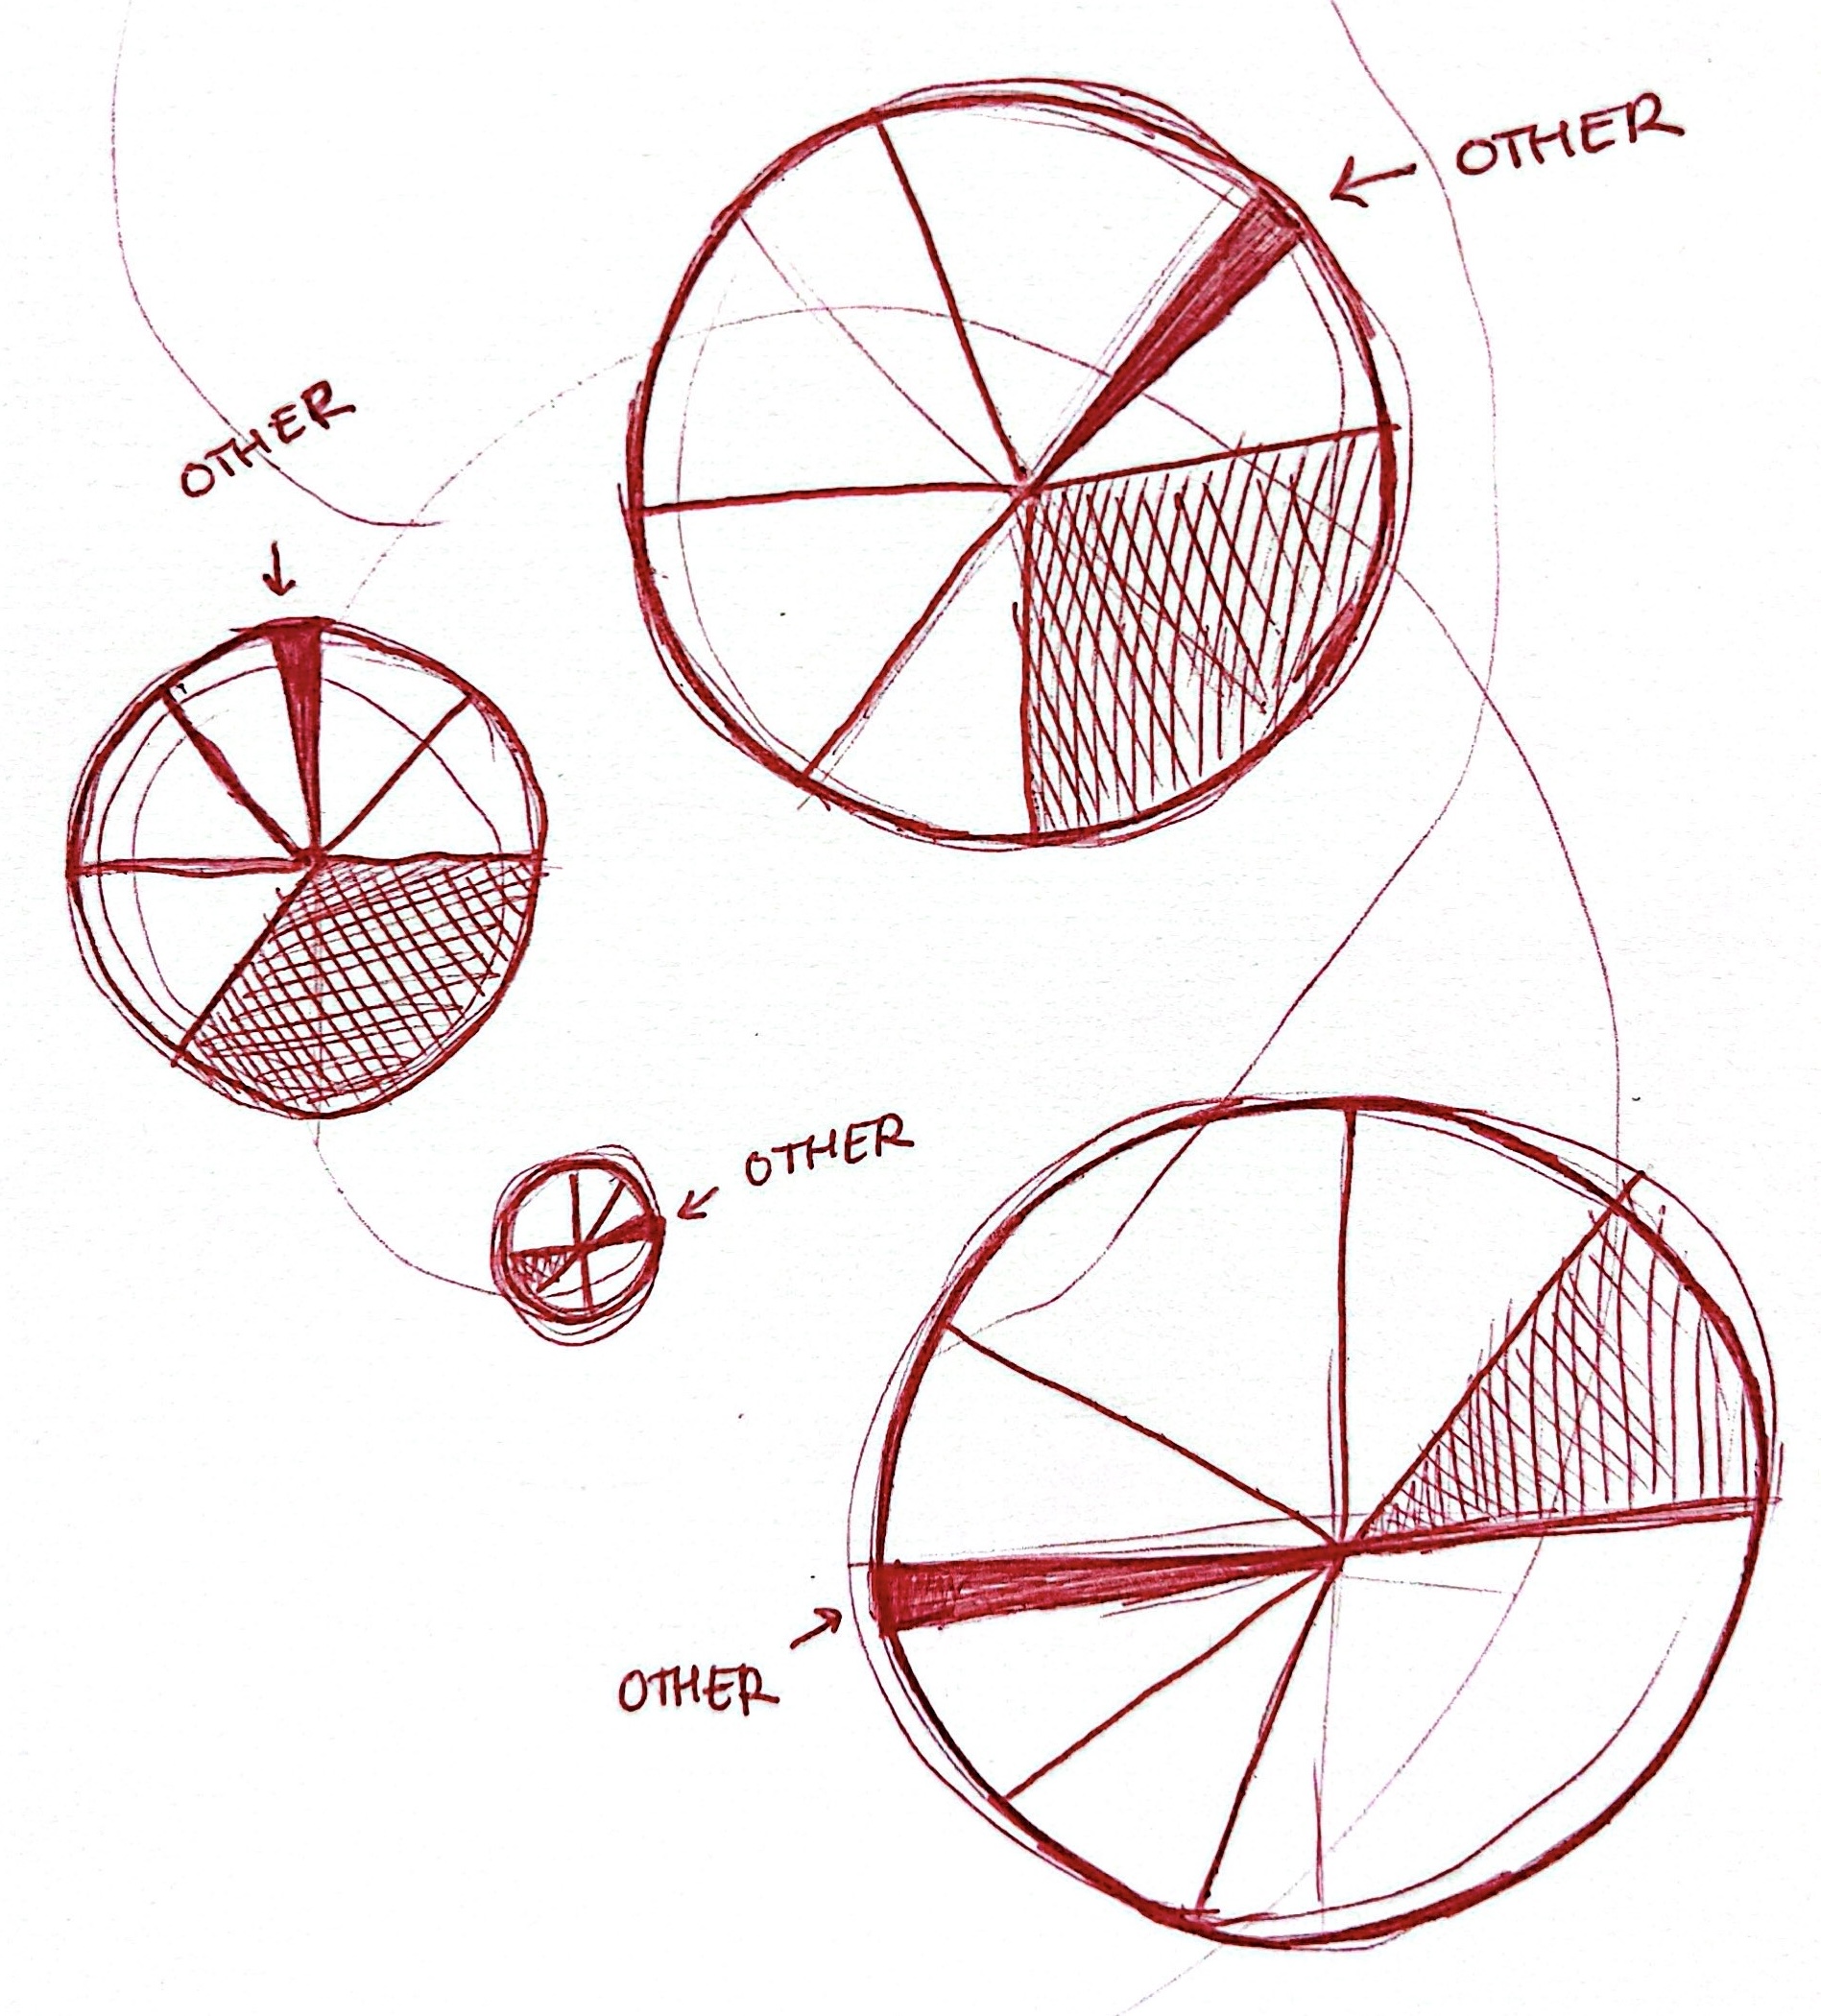 OTHER
OTHER
OTHER
OTHER